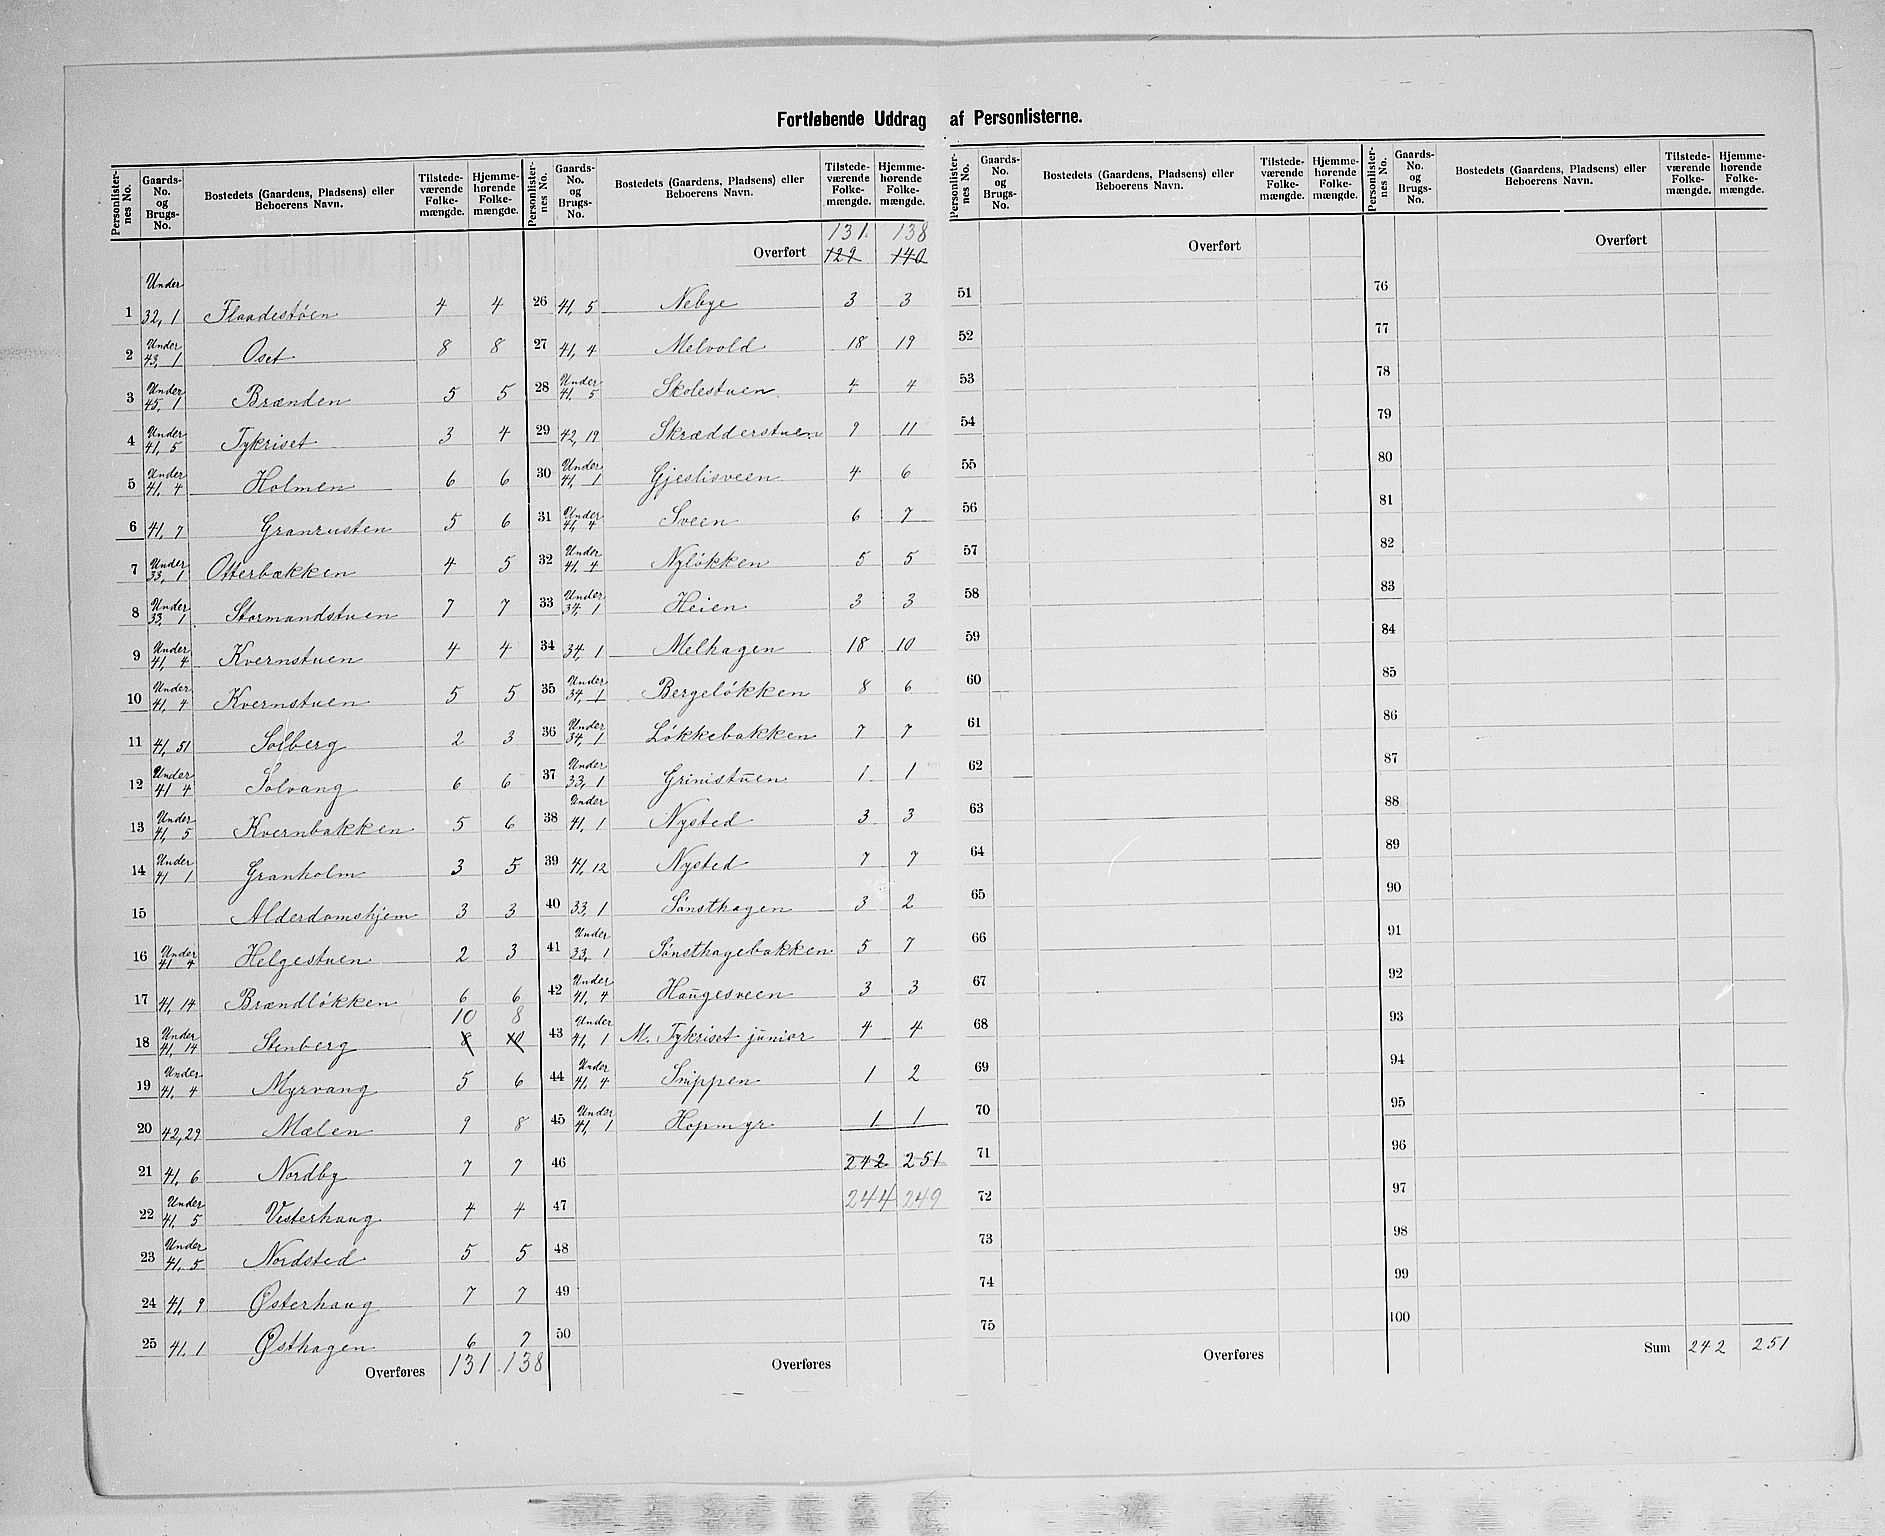 Fortløbende Uddrag af Personlisterne.
Personlister-nes No. Gaards-No. og Brugs-No. Bostedets (Gaardens, Pladsens) eller Beboerens Navn. Tilstede-værende Folke-mængde. Hjemme-hørende Folke-mængde.
1 Under 32, 1 Flaadestøen 4 4
2 Under 43, 1 Oset 8 8
3 Under 45, 1 Brænden 5 5
4 Under 41, 5 Tykriset 3 4
5 Under 41, 4 Holmen 6 6
6 41, 7 Granrusten 5 6
7 Under 33, 1 Otterbækken 4 5
8 Under 33, 1 Stormandstuen 7 7
9 Under 41, 4 Kvernstuen 4 4
10 Under 41, 4 Kvernstuen 5 5
11 41, 51 Solberg 2 3
12 Under 41 4 Solvang 6 6
13 Under 41, 5 Kvernbakken 5 6
14 Under 41 1 Granholm 3 5
15 Alderdomshjem 3 3
16 Under 41 4 Helgestuen 2 3
17 41, 14 Brændløkken 6 6
10 8
18 Under 41, 14 Stenberg 8 10
19 Under 41, 4 Myrvang 5 6
20 42, 29 Mælen 9 8
21 41, 6 Nordby 7 7
22 Under 41, 5 Vesterhaug 4 4
23 Under 41, 5 Nordsted 5 5
24 41, 9 Østerhaug 7 7
25 41, 1 Østhagen 6 7
Overføres 131 138
Personlister-nes No. Gaards-No. og Brugs-No. Bostedets (Gaardens, Pladsens) eller Beboerens Navn. Tilstede-værende Folke-mængde. Hjemme-hørende Folke-mængde.
131 138
Overført 129 140
26 41, 5 Nebye 3 3
27 41, 4 Melvold 18 19
28 Under 41, 5 Skolestuen 4 4
29 42, 19 Skrædderstuen 9 11
30 Under 41, 1 Gjeslisveen 4 6
31 Under 41, 4 Sveen 6 7
32 Under 41, 4 Nyløkken 5 5
33 Under 34, 1 Heien 3 3
34 34, 1 Melhagen 18 10
35 Under 34, 1 Bergeløkken 8 6
36 Under 34, 1 Løkkebakken 7 7
37 Under 33, 1 Grinistuen 1 1
38 Under 41, 1 Nysted 3 3
39 41, 12 Nysted 7 7
40 33, 1 Sønsthagen 3 2
41 Under 33, 1 Sønsthagebakken 5 7
42 Under 41, 4 Haugesveen 3 3
43 Under 41, 1 M. Tykriset junior 4 4
44 Under 41, 4 Snippen 1 2
45 Under 41, 1 Hopmyr 1 1
46 242 251
47 244 249
48
49
50
Overføres
Personlister-nes No. Gaards-No. og Brugs-No. Bostedets (Gaardens, Pladsens) eller Beboerens Navn. Tilstede-værende Folke-mængde. Hjemme-hørende Folke-mængde.
Overført
51
52
53
54
55
56
57
58
59
60
61
62
63
64
65
66
67
68
69
70
71
72
73
74
75
Overføres
Personlister-nes No. Gaards-No. og Brugs-No. Bostedets (Gaardens, Pladsens) eller Beboerens Navn. Tilstede-værende Folke-mængde. Hjemme-hørende Folke-mængde.
Overført
76
77
78
79
80
81
82
83
84
85
86
87
88
89
90
91
92
93
94
95
96
97
98
99
100
Sum 242 251